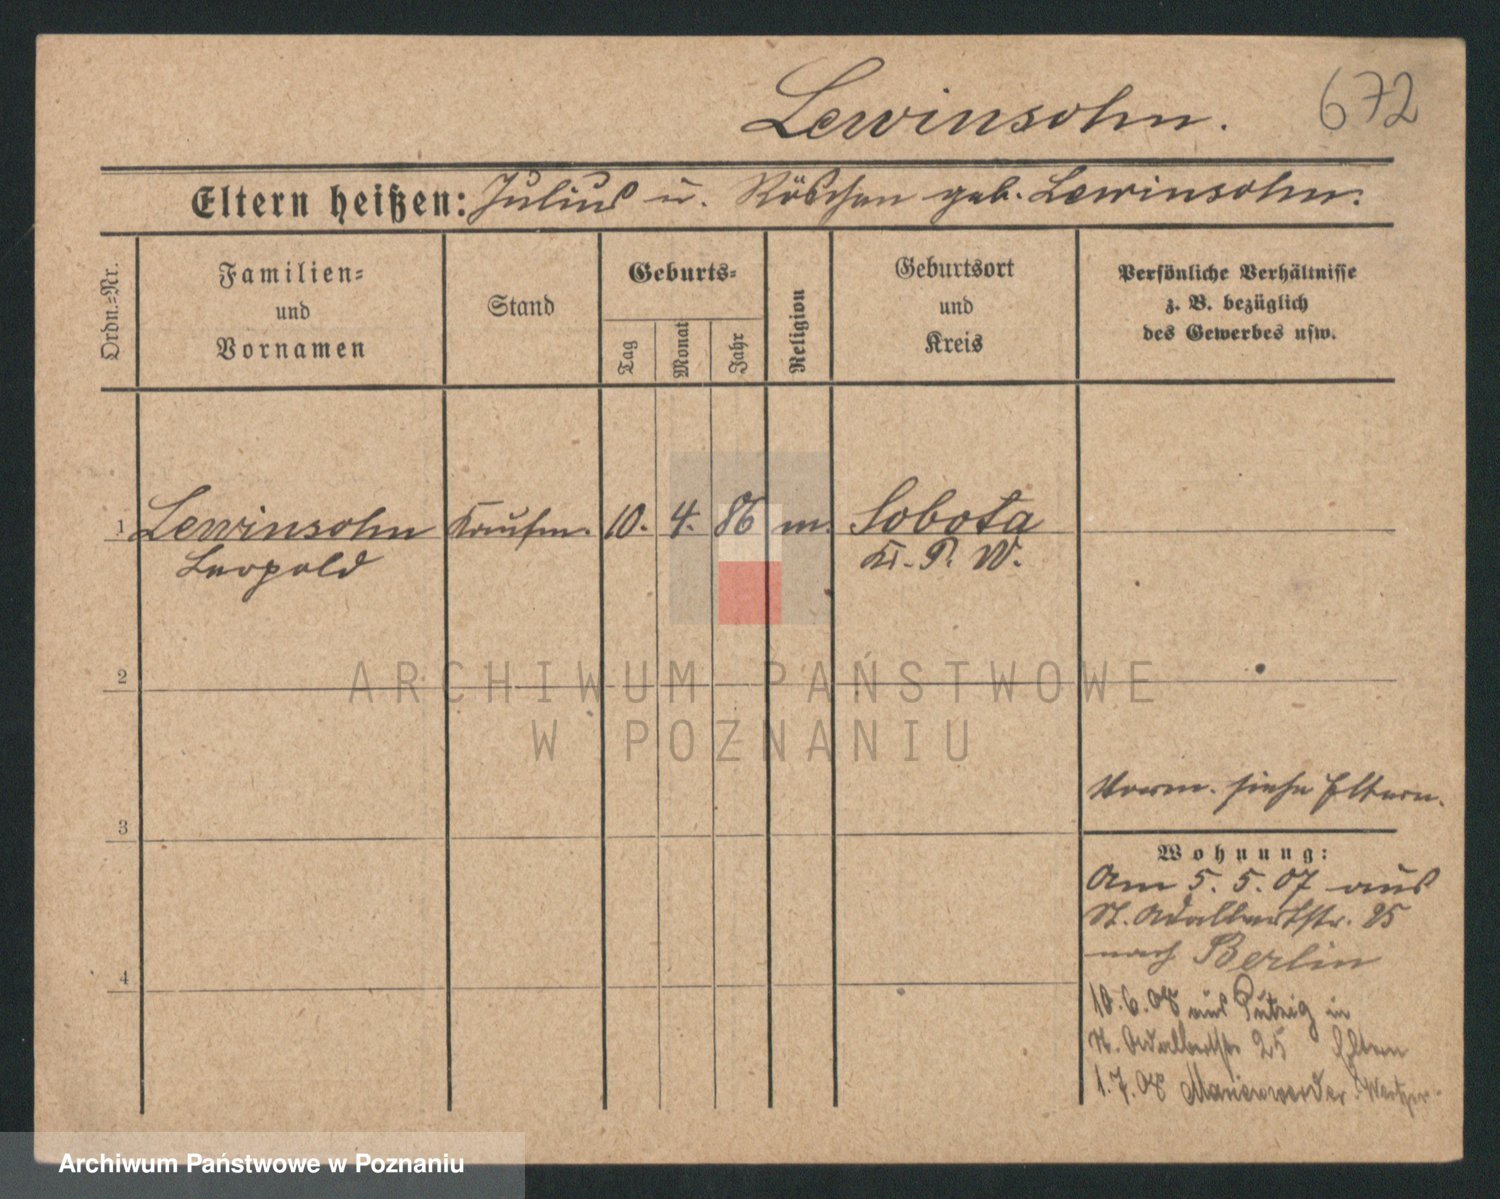 Lewinsohn.
672
Eltern heißen: Julius u. Röschen geb. Lewinsohn.
Ordn.=Nr.
Familien=
und
Vornamen
Stand
Geburts=
Tag
Monat
Jahr
Religion
Geburtsort
und
Kreis
Persönliche Verhältnisse
z. B. bezüglich
des Gewerbes usw.
1 Lewinsohn Kaufm. 10. 4. 86 m. Sobota
Leopold Kr. P. W.
ARCHIWUM PAŃSTWOWE
2
W POZNANIU
Vorm. siehe Eltern.
3
Wohnung:
Am 5. 5. 07 aus
St. Adalbertstr. 25
nach Berlin
4
10. 6. 08 aus Putzig in
St. Adalbertstr 25 Eltern
1. 7. 08 Marienwerder
Archiwum Państwowe w Poznaniu